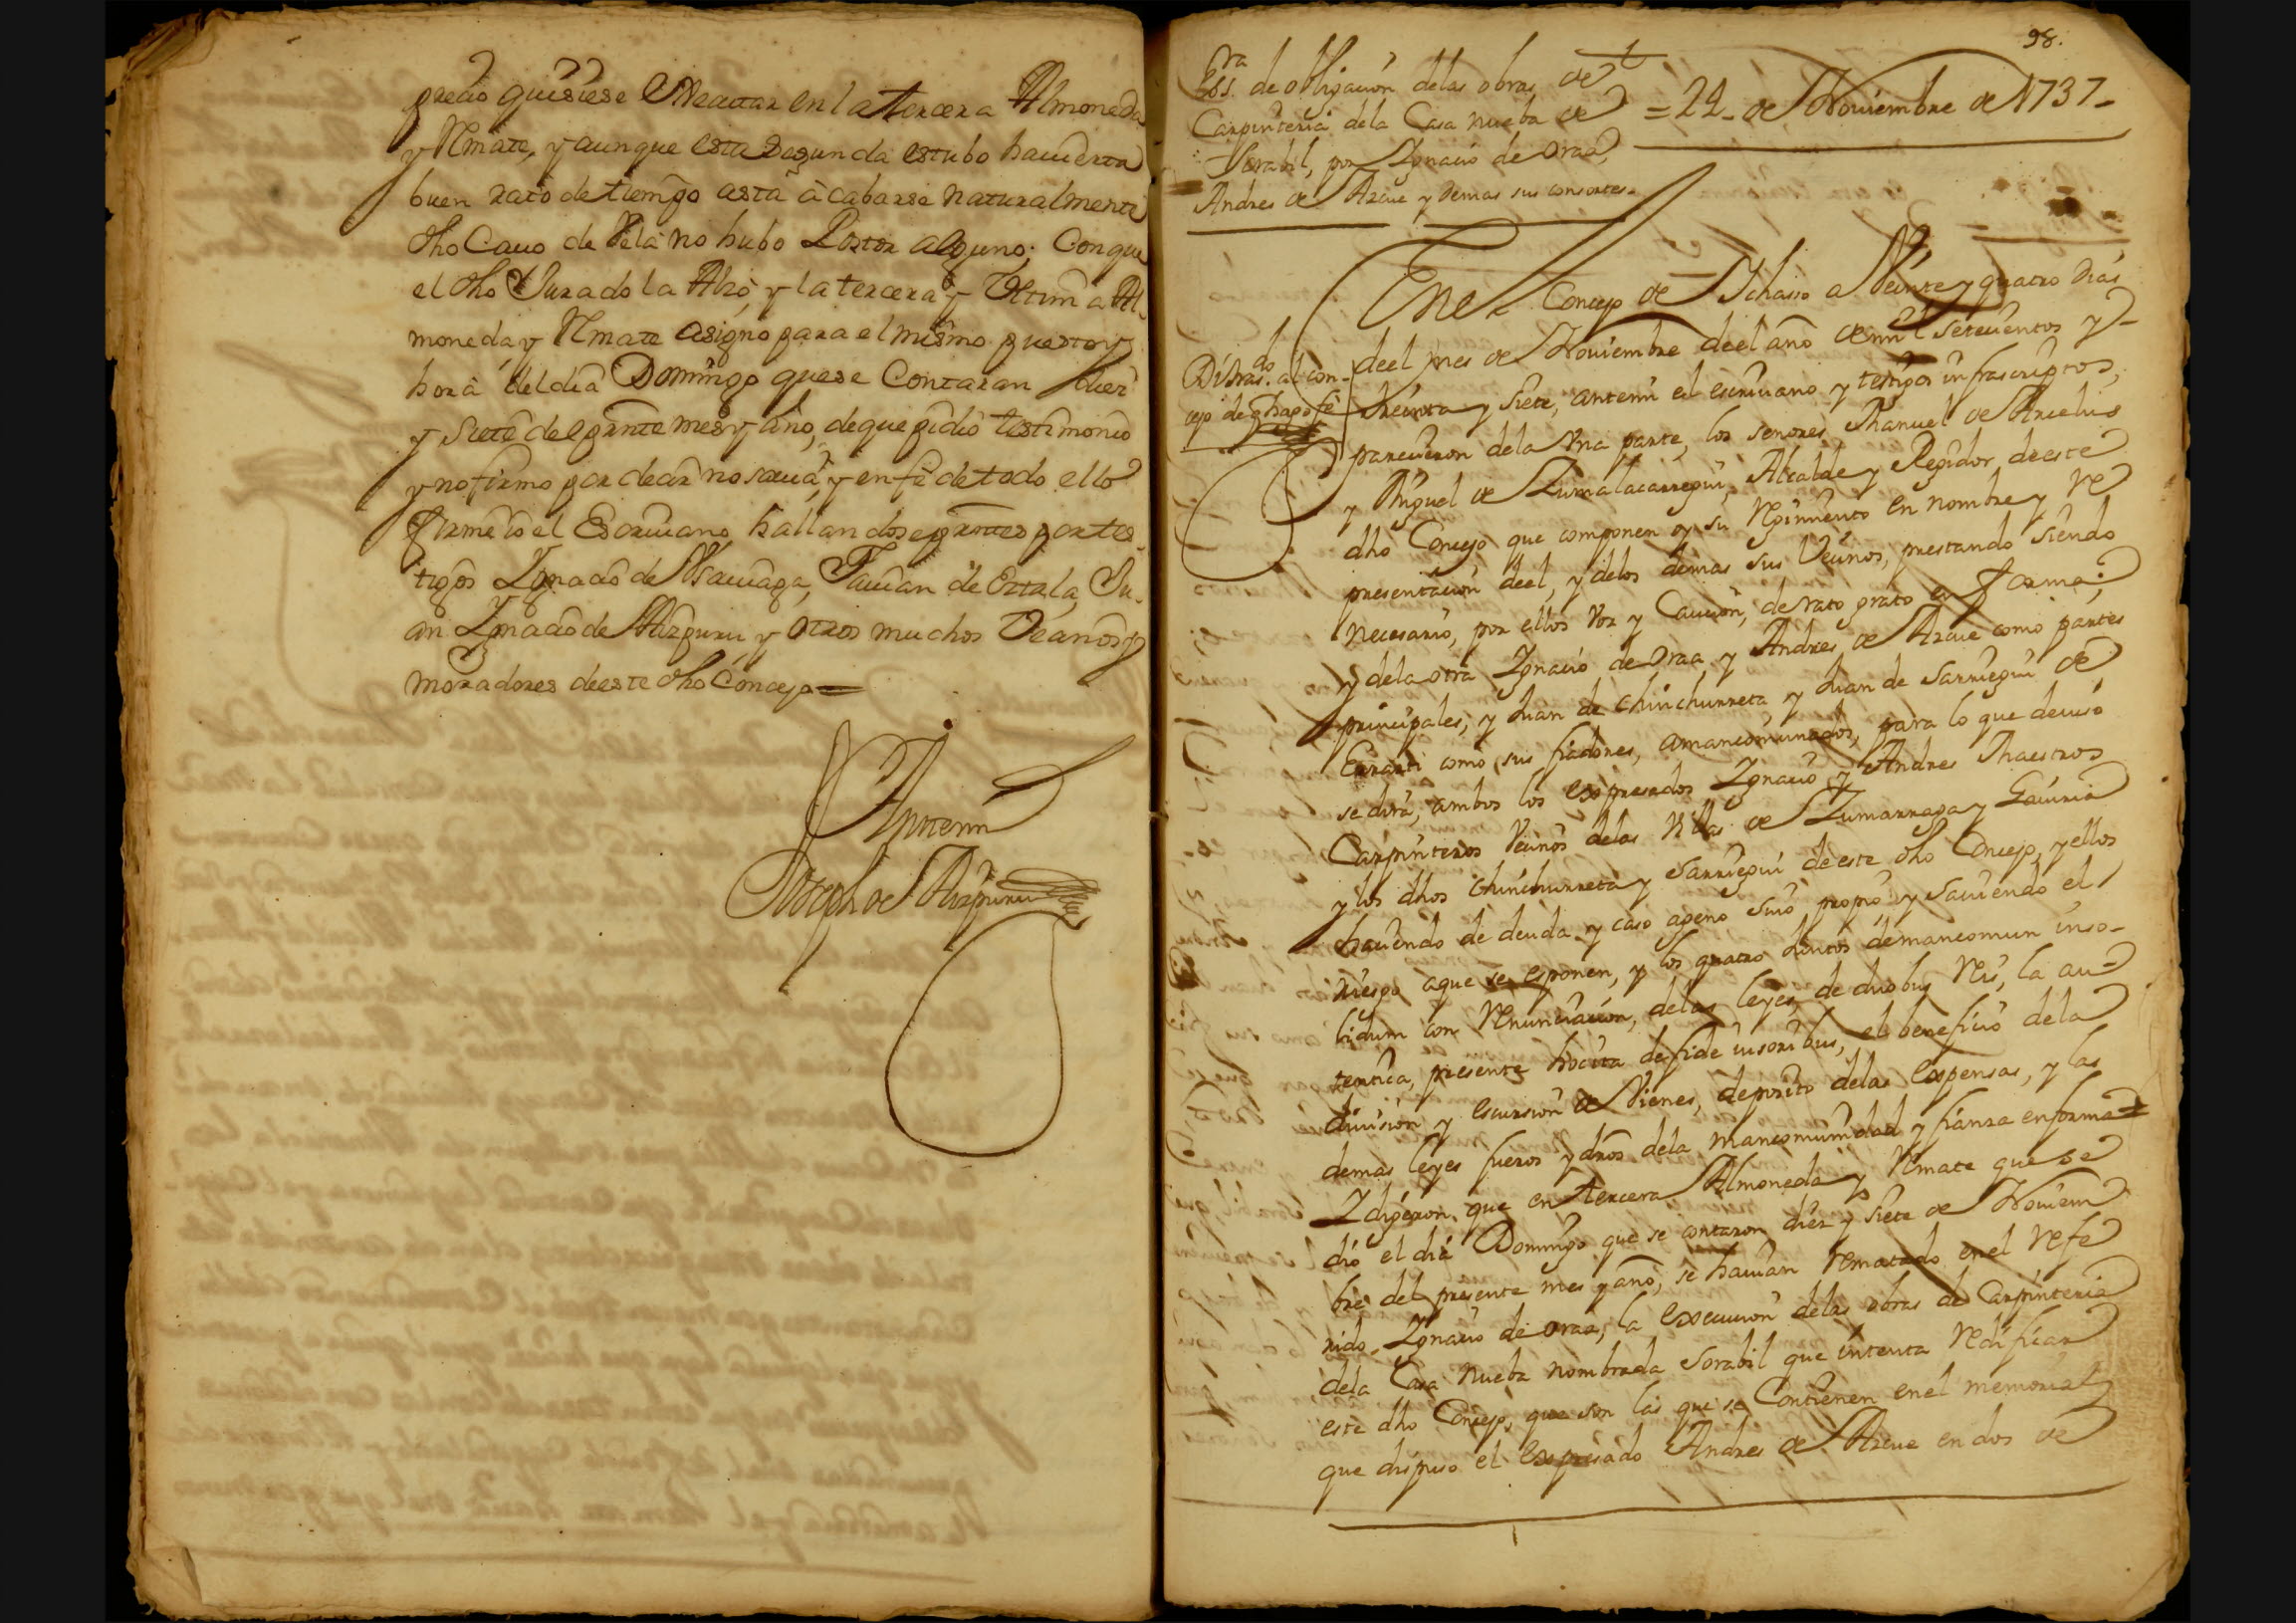 precio quisiese executar en la tercera Almoneda
y Rmate, y aunque esta segunda estubo havierta
buen rato de tiempo asta àcabarse naturalmente
dho Cauo de Vela no hubo Postor alguno: Con que
el dho Jurado la Alzó, y la tercera y Vltima Al-
moneda y Rmate asigno para el mismo puesto y
hora del dia Domingo que se Contaran diez
y siete del prnte mes y año, de que pidio testimonio
y no firmo por decir no sauia, y en fe de todo ello
firme io el Escriuano hallandose prntes por tes-
tigos Ygnacio de Ysauaga, Fauian de Eztala, Ju-
an Ygnacio de Aizpuru y otros muchos Vecinos y
moradores de este dho Concejo=
Antemi
Joseph de Aizpuru
98.
Scra de obligacion de las obras de
Carpinteria de la Casa nueba de
Sorabil, por Ygnacio de Oraa,
Andres de Azcue y demas sus consortes.
=24- de Noviembre de 1737-
Di tras.do al con-
cejo de q hago fe
En el Concejo de Ichaso a Veinte y quatro dias
de el mes de Noviembre de el año de mil setecientos y
treinta y siete, antemi el escriuano y testigos infrascriptos,
parecieron de la vna parte, los señores Manuel de Arcelus
y Miguel de Zumalacarregui, Alcalde y Regidor de este
dho Concejo, que componen oy su Rejimiento en nombre y re
presentacion de el, y de los demas sus Vecinos, prestando siendo
necesario, por ellos voz y Caucion, de rato grato en forma;
y de la otra Ygnacio de Oraa y Andres de Azcue como partes
principales, y Juan de Chinchurreta, y Juan de Sarriegui de
Errarti como sus fiadores, amancomunados, para lo que deuiso
se dira, ambos los expresados Ygnacio y Andres Maestros
Carpinteros Vecinos de las Villas de Zumarraga y Gauiria
y los dhos Chinchurreta y Sarriegui de este dho Concejo, y ellos
haciendo de deuda y caso ageno suio propio, y sauiendo el
riesgo a que se esponen, y los quatro Juntos de mancomun inso-
lidum con renunciacion, de las leyes, de duobus reis, la au-
tentica, presente hocita de fide iusoribus, el beneficio de la
diuision y escursion de Vienes, deposito de las expensas, y las
demas leyes fueros y dros de la mancomunidad y fianza en forma=
Y dijeron, que en tercera Almoneda y Rmate que se
dió el dia Domingo que se contaron diez y siete de Noviem
bre del presente mes y año, se hauian rematado en el refe
rido Ygnacio de Oraa, la execucion de las obras de Carpinteria
de la Casa nueba nombrada Sorabil que intenta redificar
este dho Concejo, que son las que se Contienen en el memorial
que dispuso el expresado Andres de Azcue en dos de